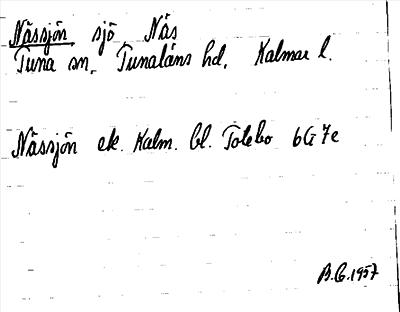 Nässjön sjö Näs
Tuna sn. Tunaläns hd. Kalmar l.
Nässjön ek. Kalm. bl. Tolebo 6G 7e
B.G. 1957